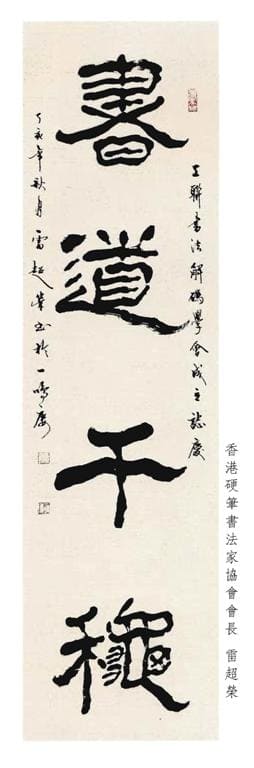 工聯書法解碼學會成立誌慶
書道千龝
丁亥年秋月雷超榮书於一鳴廬
香港硬筆書法家協會會長 雷超榮